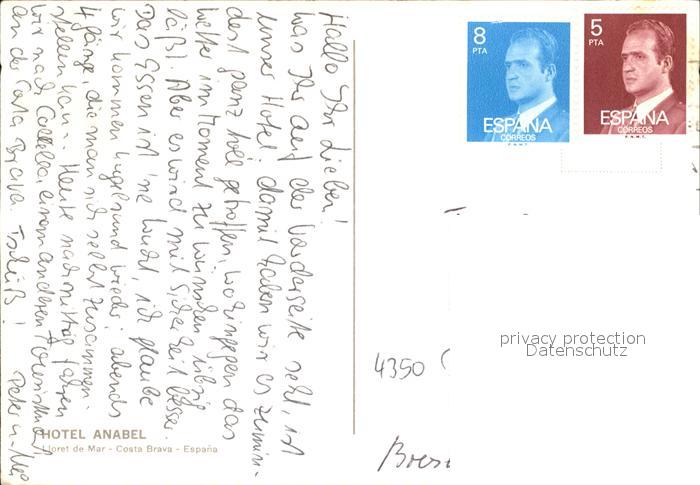 Hallo Ihr Lieben!
Was Ihr auf der Vorderseite seht, ist
unser Hotel. damit haben wir es zumin-
dest ganz toll getroffen, wohingegen das
Wetter im Moment zu wünschen übrig
läßt. Aber es wird mit Sicherheit besser.
Das Essen ist 'ne Wucht, ich glaube
wir kommen kugelrund wieder; abends
4 Gänge die man sich selbst zusammen-
stellen kann. Heute nachmittag fahren
wir nach Calella, einem anderen
an der Costa Brava. Tschüß!
Peter u.
HOTEL ANABEL
Lloret de Mar - Costa Brava - España
8
PTA
ESPAÑA
CORREOS
F.N.M.T.
5
PTA
ESPAÑA
CORREOS
F.N.M.T.
privacy protection
Datenschutz
4350